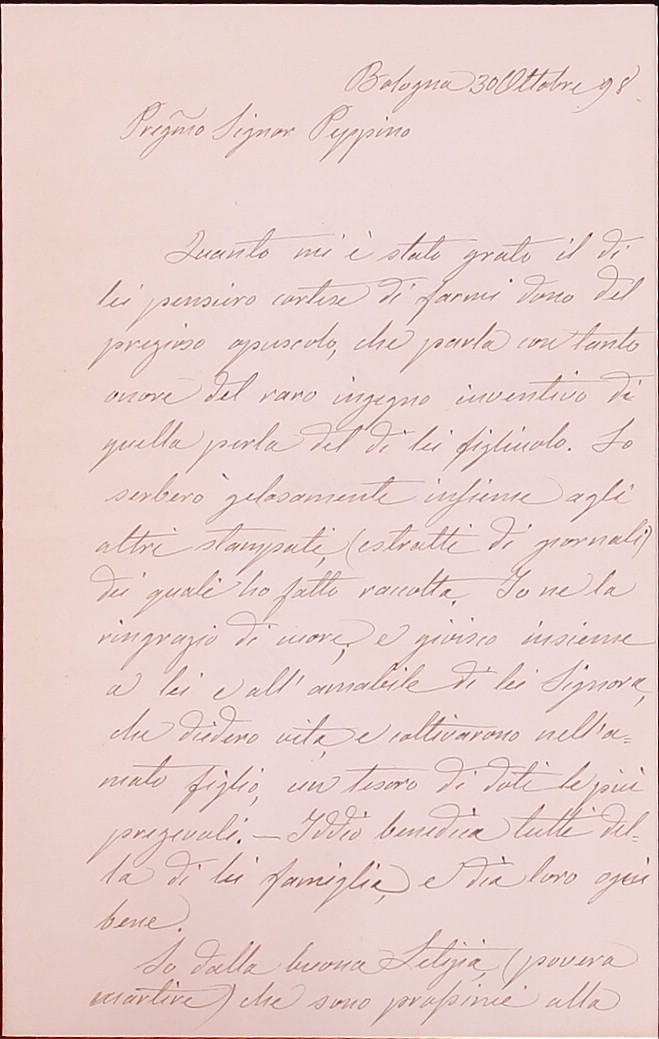 Bologna 30 Ottobre 98.
Pregmo Signor Peppino
Quanto mi è stato grato il di
lei pensiero cortese di farmi dono del
pregioso opuscolo, che parla con tanto
onore del raro ingegno inventivo di
quella perla del di lei figliuolo. Lo
serberò gelosamente insieme agli
altri stampati, (estratti di giornali)
dei quali ho fatto raccolta. Io ne la
ringrazio di cuore, e gioisco insieme
a lei e all'amabile di lei Signora,
che diedero vita, e coltivarono nell'a=
mato figlio, un tesoro di doti le più
pregevoli. — Iddio benedica tutti del=
la di lei famiglia, e dia loro ogni
bene.
So dalla buona Letizia, (povera
martire) che sono prossimi alla